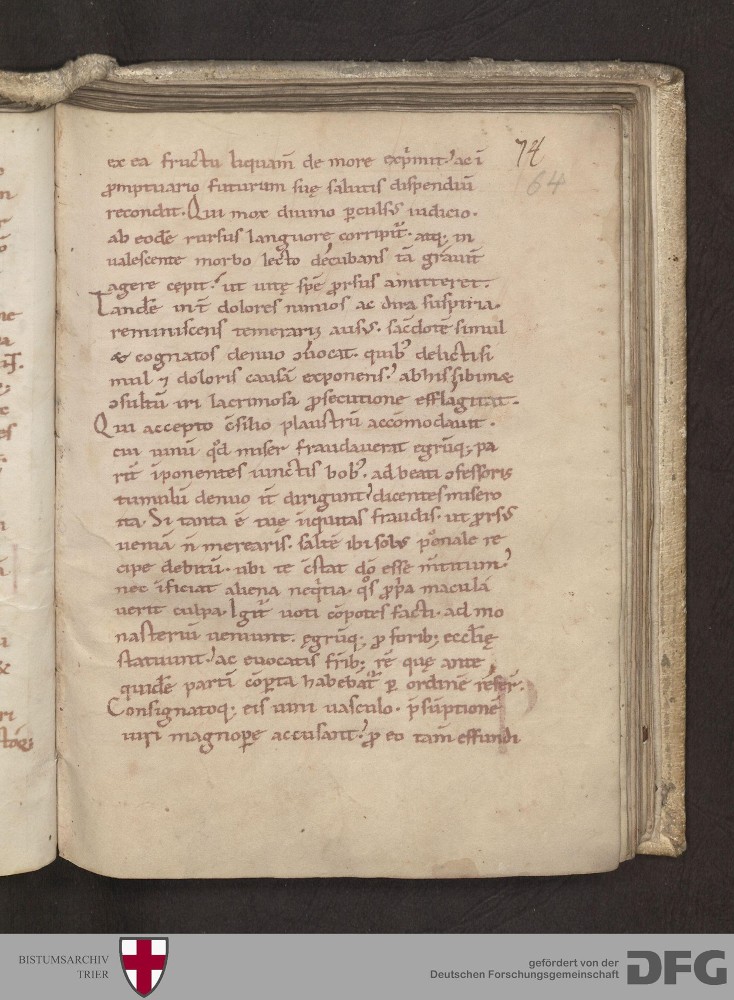 74
64
ex ea fructu liquam̄ de more exp̍mit. ac ī
ꝓmptuario futurum suę salutis dispendiū
recondit. Qui mox diuino ꝑculsꝰ iudicio.
ab eodē rursus languore corripit᷑. atq; in
ualescente morbo lecto decubans tā grauit̄
agere cępit. ut uitę spē ꝓrsus amitteret.
Tandē int̄ dolores nimios ac dira suspiria.
reminiscens temerarii ausꝰ. sac̄dotē simul
& cognatos denuo ↄuocat. quibꝰ delicti si
mul ⁊ doloris causā exponens. ab his sibimæ
ↄsultū iri lacrimosa ꝓsecutione efflagitat.
Qui accepto c̄silio plaustrū accōmodauit.
cui uinū qd̄ miser fraudauerat egrūq; pa
rit̄ īponentes iunctis bobꝰ. ad beati ↄfessoris
tumulū denuo it̄ dirigunt. dicentes misero
ita. Si tanta ē tuę iīquitas fraudis. ut ꝓrsꝰ
ueniā n̄ merearis. saltē ibi solꝰ pͦenale re
cipe debitū. ubi te c̄stat dō esse mētitum.
nec īficiat aliena neq̍tia. qͦs ꝓp̍a maculā
uerit culpa. Igit᷑ uoti cōpotes facti. ad mo
nasteriū ueniunt. ęgrūq; ꝓ forib; eccl̄ię
statuunt. ac euocatis fr̄ib; rē quę ante
quidē partī cōꝑta habebat᷑ ꝑ ordinē reser̄.
Consignatoq; eis uini uasculo. p̄sūptionē
uiri magnopę accusant. ꝓ eo tam̄ effundi
BISTUMSARCHIV
TRIER
gefördert von der
Deutschen Forschungsgemeinschaft
DFG